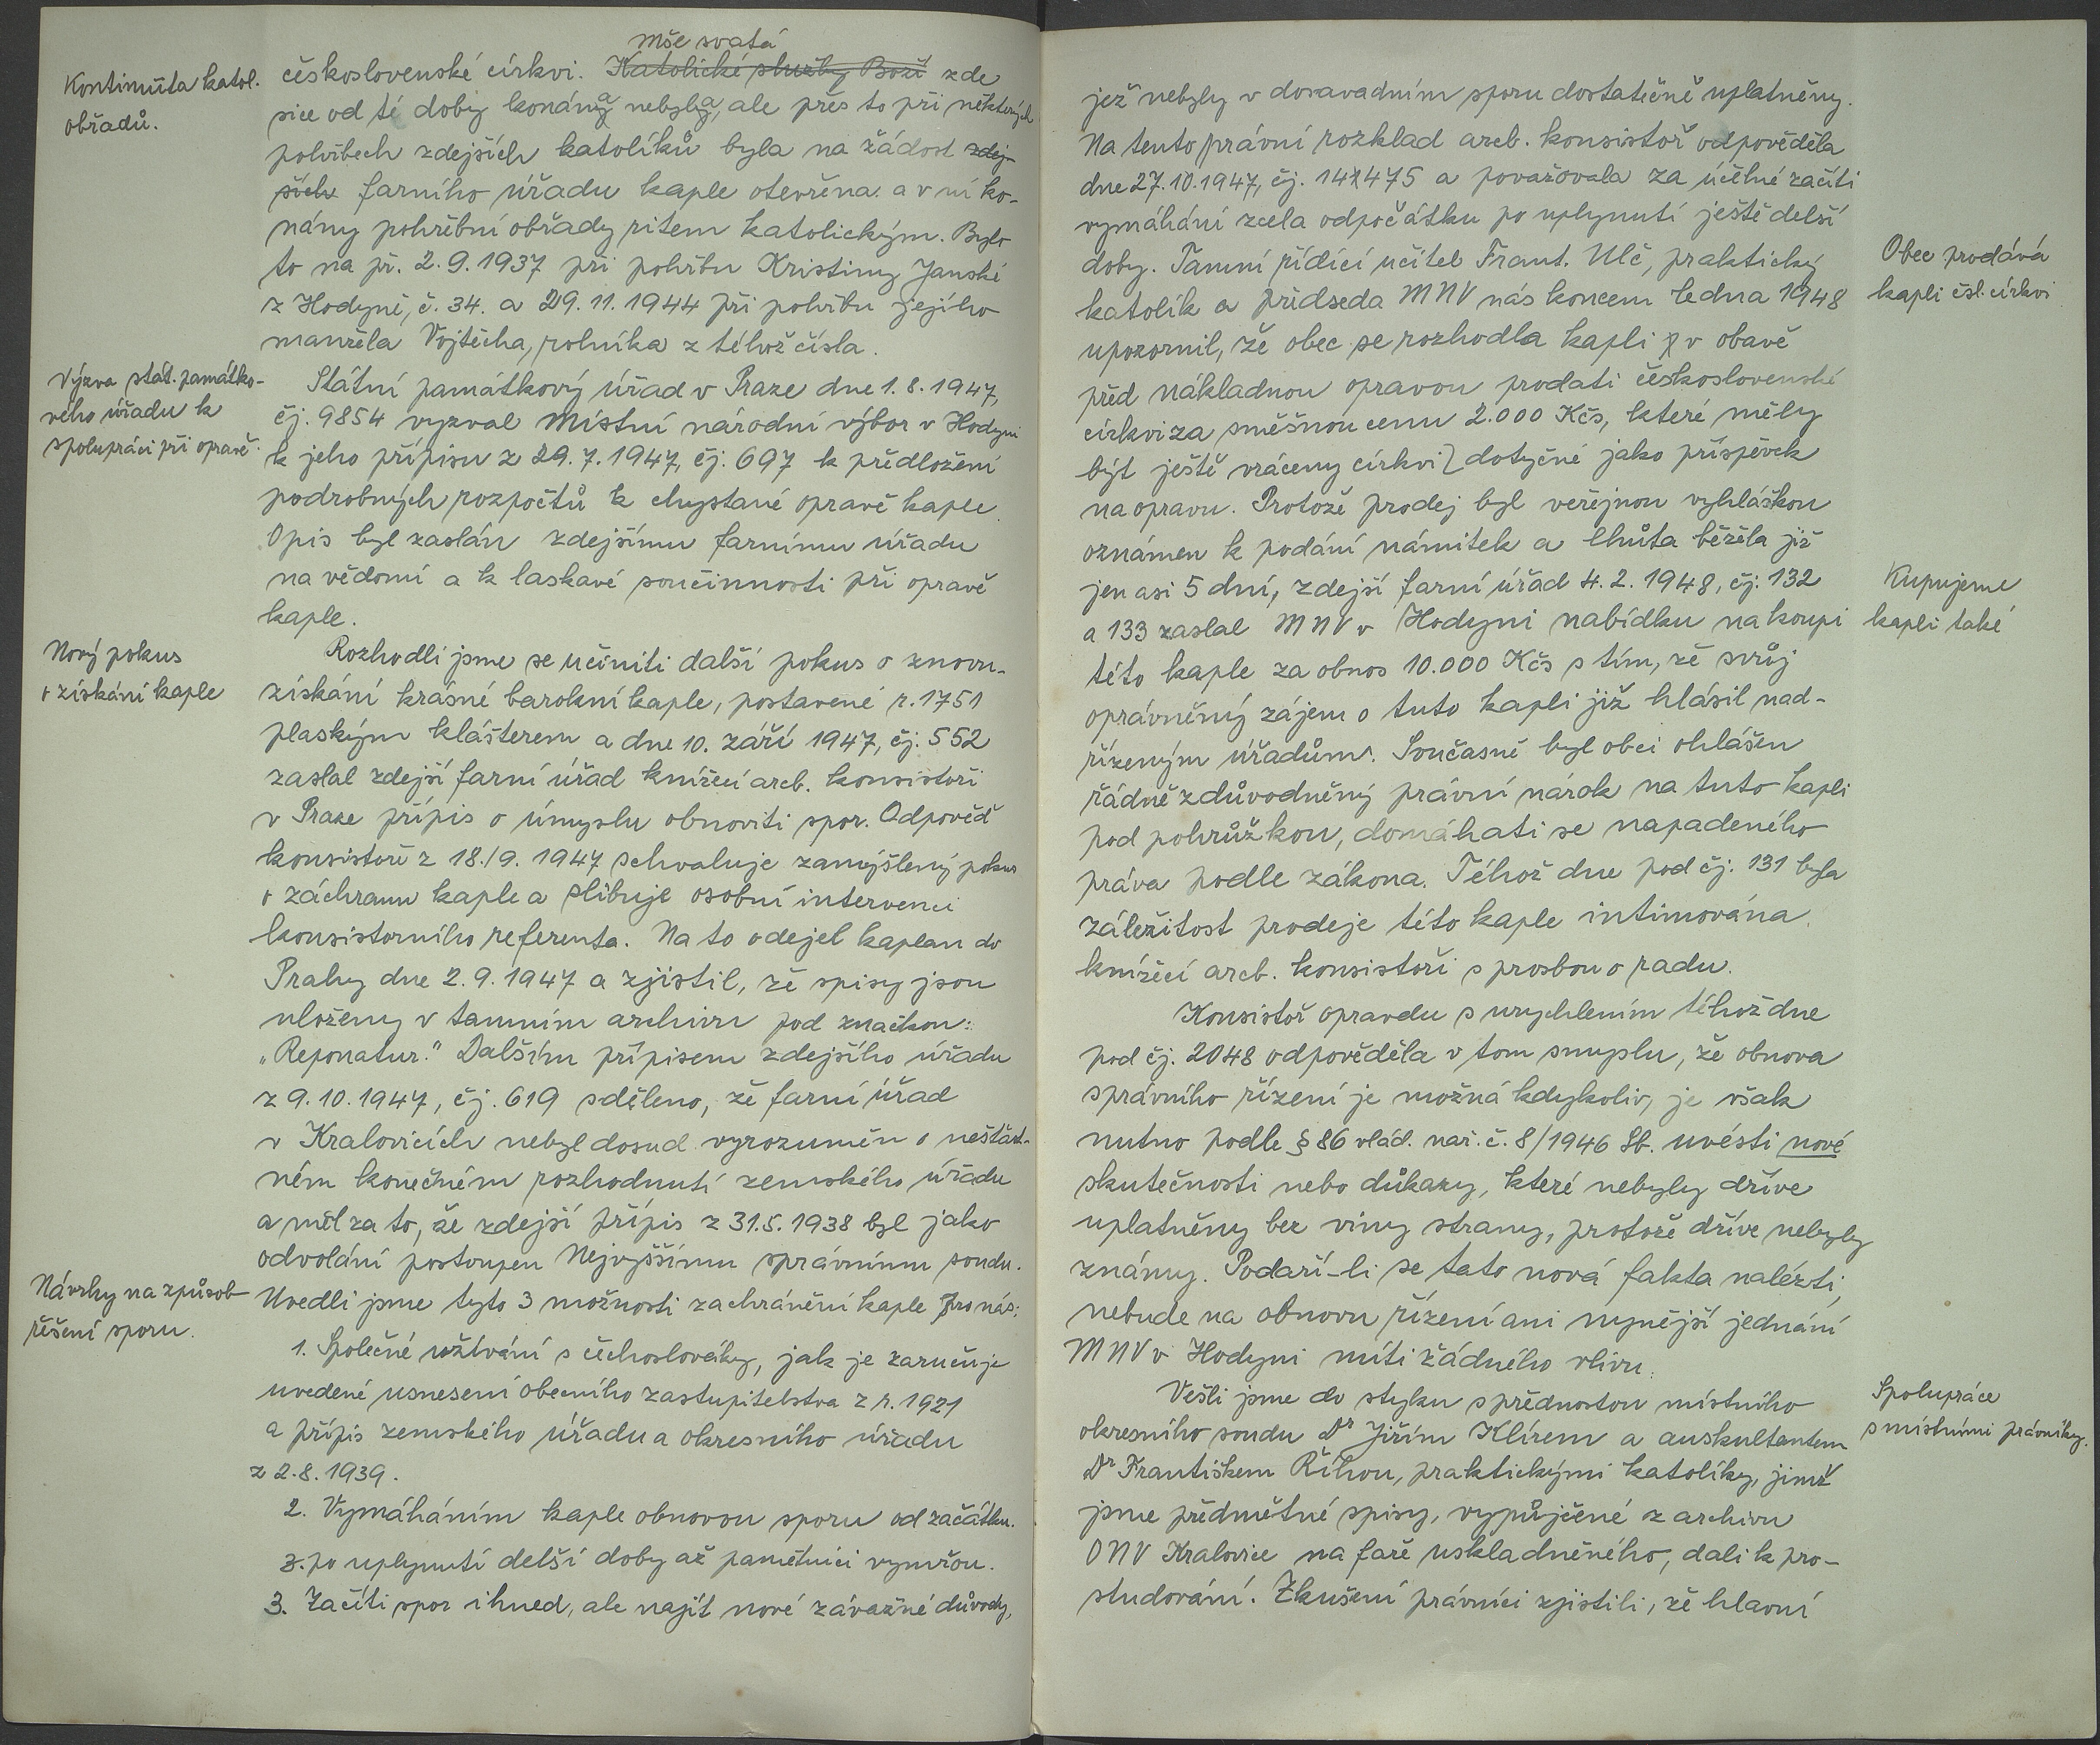 Kontinuita katol.
obřadů.
mše svatá
československé církvi. Katolické služby Boží zde
sice od té doby konána nebyla, ale přes to při některých
pohřbech zdejších katolíků byla na žádost zdej-
ších farního úřadu kaple otevřena a v ní ko-
nány pohřební obřady ritem katolickým. Bylo
to na př. 2.9.1937 při pohřbu Kristiny Janské
z Hodyně, č. 34. a 29.11.1944 při pohřbu jejího
manžela Vojtěcha, rolníka z téhož čísla.
Výzva stát. památko-
vého úřadu k
spolupráci při opravě.
Státní památkový úřad v Praze dne 1.8.1947,
čj. 9854 vyzval Místní národní výbor v Hodyni
k jeho přípisu z 29.7.1947, čj. 697 k předložení
podrobných rozpočtů k chystané opravě kaple.
Opis byl zaslán zdejšímu farnímu úřadu
na vědomí a k laskavé součinnosti při opravě
kaple.
Nový pokus
o získání kaple
Rozhodli jsme se učiniti další pokus o znovu-
získání krásné barokní kaple, postavené r. 1751
plaským klášterem a dne 10. září 1947, čj. 552
zaslal zdejší farní úřad knížecí arcb. konsistoři
v Praze přípis o úmyslu obnoviti spor. Odpověď
konsistoře z 18./9. 1947 schvaluje zamýšlený pokus
o záchranu kaple a slibuje osobní intervenci
konsistorního referenta. Na to odejel kaplan do
Prahy dne 2.9.1947 a zjistil, že spisy jsou
uloženy v tamním archivu pod značkou:
„Reponatur." Dalším přípisem zdejšího úřadu
z 9.10.1947, čj. 619 sděleno, že farní úřad
v Kralovicích nebyl dosud vyrozuměn o nešťast-
ném konečném rozhodnutí zemského úřadu
a měl za to, že zdejší přípis z 31.5.1938 byl jako
odvolání postoupen Nejvyššímu správnímu soudu.
Návrhy na způsob
řešení sporu.
Uvedli jsme tyto 3 možnosti zachránění kaple pro nás:
1. Společné užívání s čechoslováky, jak je zaručuje
uvedené usnesení obecního zastupitelstva z r. 1921
a přípis zemského úřadu a okresního úřadu
z 2.8.1939.
2. Vymáháním kaple obnovou sporu od začátku.
3. po uplynutí delší doby až pamětníci vymřou.
3. Začíti spor ihned, ale najít nové závažné důvody,
jež nebyly v dosavadním sporu dostatečně uplatněny.
Na tento právní rozklad arcb. konsistoř odpověděla
dne 27.10.1947, čj. 14475 a považovala za účelné začíti
vymáhání zcela odpočátku po uplynutí ještě delší
doby. Tamní řídící učitel Frant. Ulč, praktický
katolík a předseda MNV nás koncem ledna 1948
upozornil, že obec se rozhodla kapli v obavě
před nákladnou opravou prodati československé
církvi za směšnou cenu 2.000 Kčs, které měly
být ještě vráceny církvi dotyčné jako příspěvek
na opravu. Protože prodej byl veřejnou vyhláškou
oznámen k podání námitek a lhůta běžela již
jen asi 5 dní, zdejší farní úřad 4.2.1948, čj. 132
a 133 zaslal MNV v Hodyni nabídku na koupi
této kaple za obnos 10.000 Kčs s tím, že svůj
oprávněný zájem o tuto kapli již hlásil nad-
řízeným úřadům. Současně byl obci ohlášen
řádně zdůvodněný právní nárok na tuto kapli
pod pohrůžkou, domáhati se napadeného
práva podle zákona. Téhož dne pod čj. 131 byla
záležitost prodeje této kaple intimována
knížecí arcb. konsistoři s prosbou o radu.
Obec prodává
kapli čsl. církvi
Kupujeme
kapli také
Konsistoř opravdu s urychlením téhož dne
pod čj. 2048 odpověděla v tom smyslu, že obnova
správního řízení je možná kdykoliv, je však
nutno podle § 86 vlád. nař. č. 8/1946 Sb. uvésti nové
skutečnosti nebo důkazy, které nebyly dříve
uplatněny bez viny strany, protože dříve nebyly
známy. Podaří-li se tato nová fakta nalézti,
nebude na obnovu řízení ani nynější jednání
MNV v Hodyni míti žádného vlivu.
Vešli jsme do styku s přednostou místního
okresního soudu Dr Jiřím Klírem a auskultantem
Dr Františkem Říhou, praktickými katolíky, jimž
jsme předmětné spisy, vypůjčené z archivu
ONV Kralovice na faře uskladněného, dali k pro-
studování. Zkušení právníci zjistili, že hlavní
Spolupráce
s místními právníky.